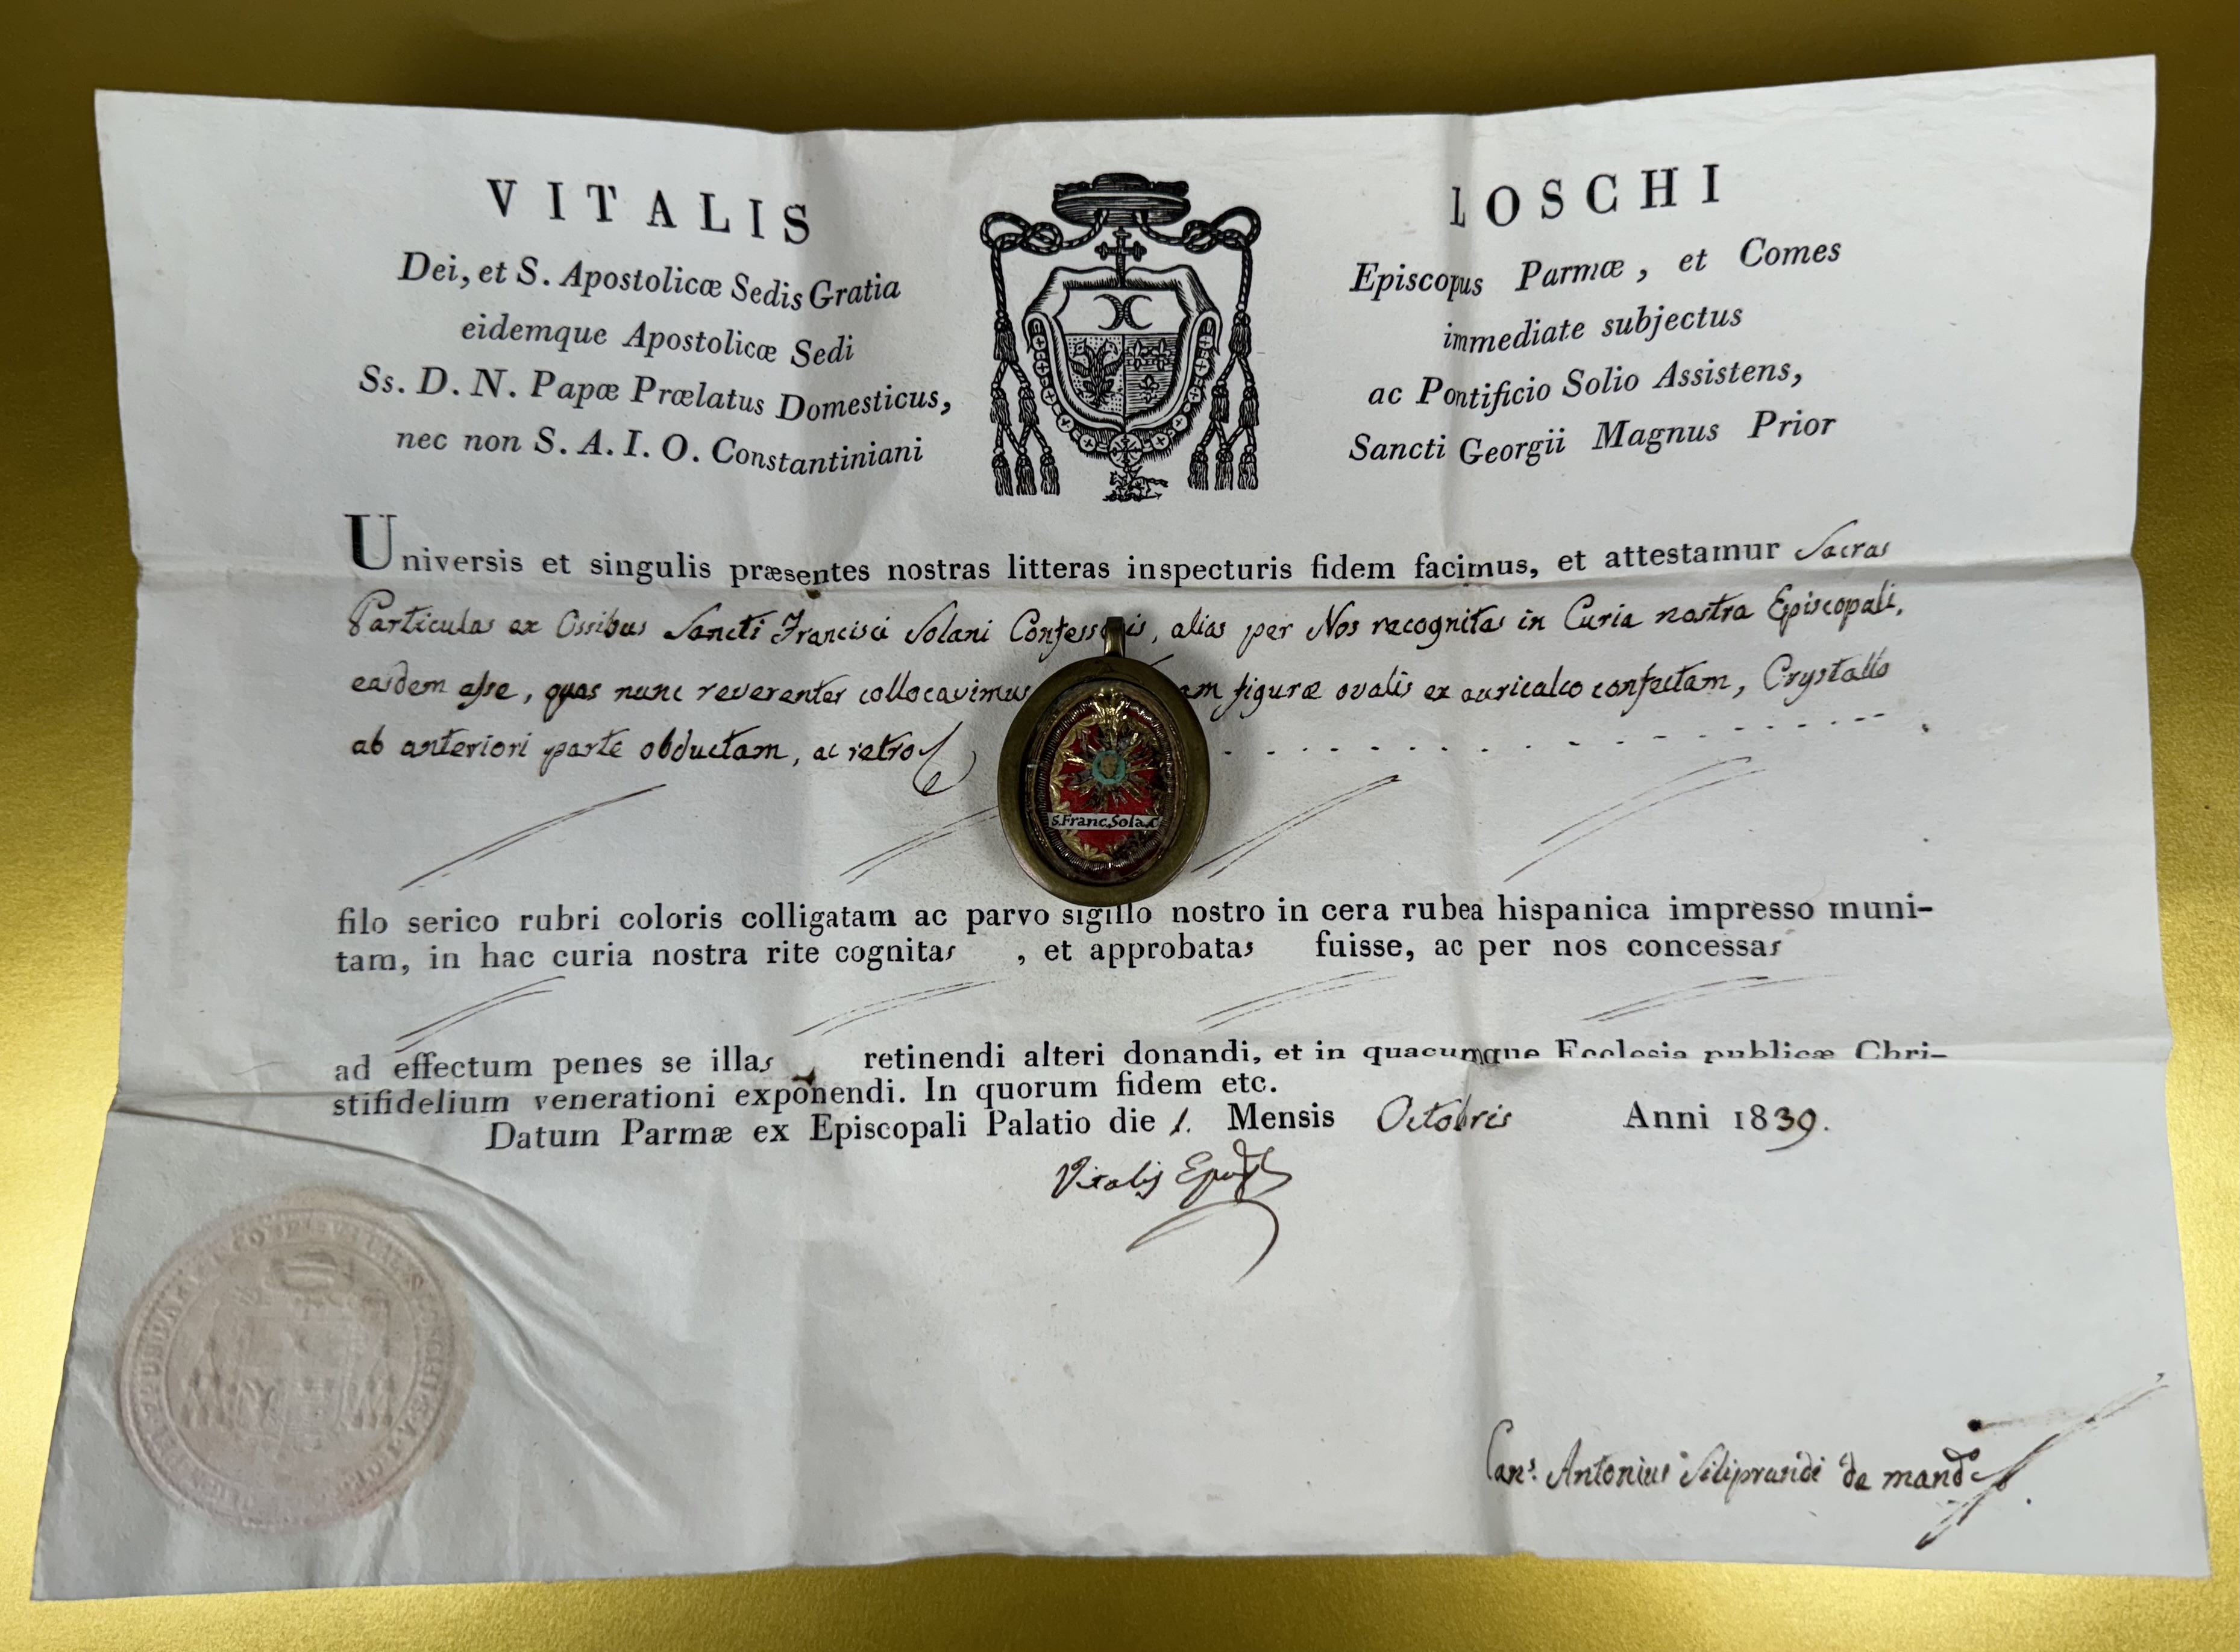 VITALIS LOSCHI
Dei, et S. Apostolicæ Sedis Gratia Episcopus Parmæ, et Comes
eidemque Apostolicæ Sedi immediate subjectus
Ss. D. N. Papæ Prælatus Domesticus, ac Pontificio Solio Assistens,
nec non S. A. I. O. Constantiniani Sancti Georgii Magnus Prior
Universis et singulis præsentes nostras litteras inspecturis fidem facimus, et attestamur Sacras
Particulas ex Ossibus Sancti Francisci Solani Confessoris, alias per Nos recognitas in Curia nostra Episcopali,
easdem esse, quas nunc reverenter collocavimus am figuræ ovalis ex auricalco confectam, Crystallo
ab anteriori parte obductam, ac retro
S. Franc. Sola. C
filo serico rubri coloris colligatam ac parvo sigillo nostro in cera rubea hispanica impresso muni-
tam, in hac curia nostra rite cognitas , et approbatas fuisse, ac per nos concessas
ad effectum penes se illas retinendi alteri donandi, et in quacumque Ecclesia publicæ Chri-
stifidelium venerationi exponendi. In quorum fidem etc.
Datum Parmæ ex Episcopali Palatio die 1. Mensis Octobris Anni 1839.
Vitalis
Can.s Antonius Siliprandi de mand.o